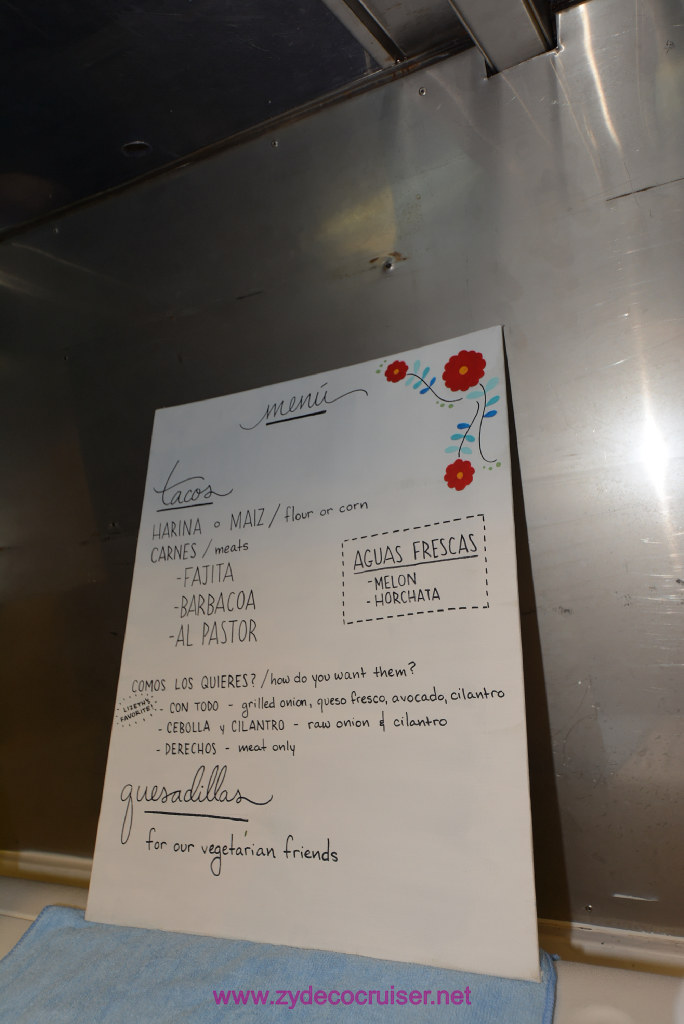 menú
tacos
HARINA o MAIZ / flour or corn
CARNES / meats
-FAJITA
-BARBACOA
-AL PASTOR
AGUAS FRESCAS
-MELON
-HORCHATA
COMOS LOS QUIERES? / how do you want them?
LIZETH'S
FAVORITE!
- CON TODO - grilled onion, queso fresco, avocado, cilantro
- CEBOLLA y CILANTRO - raw onion & cilantro
- DERECHOS - meat only
quesadillas
for our vegetarian friends
www.zydecocruiser.net